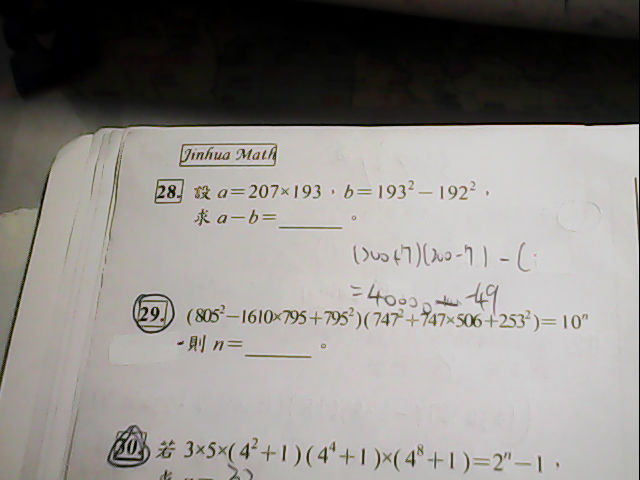 Jinhua Math
28. 設 a=207×193，b=193²－192²，
求 a－b=______。
(200+7)(200-7) - (
=40000 -49
29. (805²－1610×795+795²)(747²+747×506+253²)=10ⁿ
則 n=______。
30. 若 3×5×(4²+1)(4⁴+1)×(4⁸+1)=2ⁿ－1，